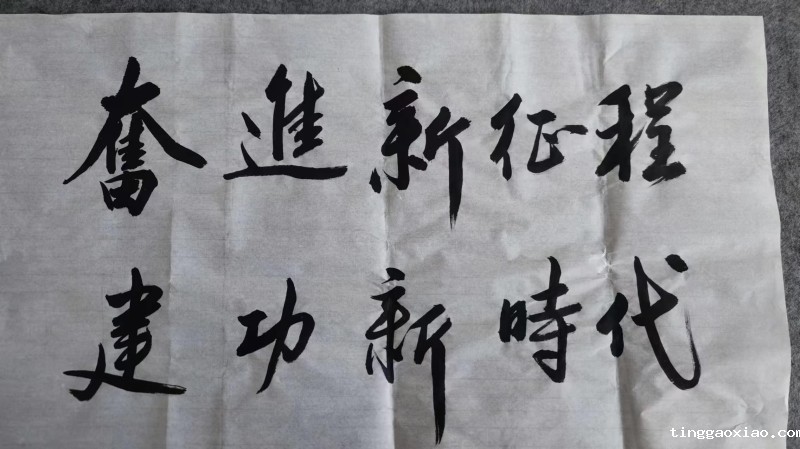 奮進新征程
建功新時代
tinggaoxiao.com